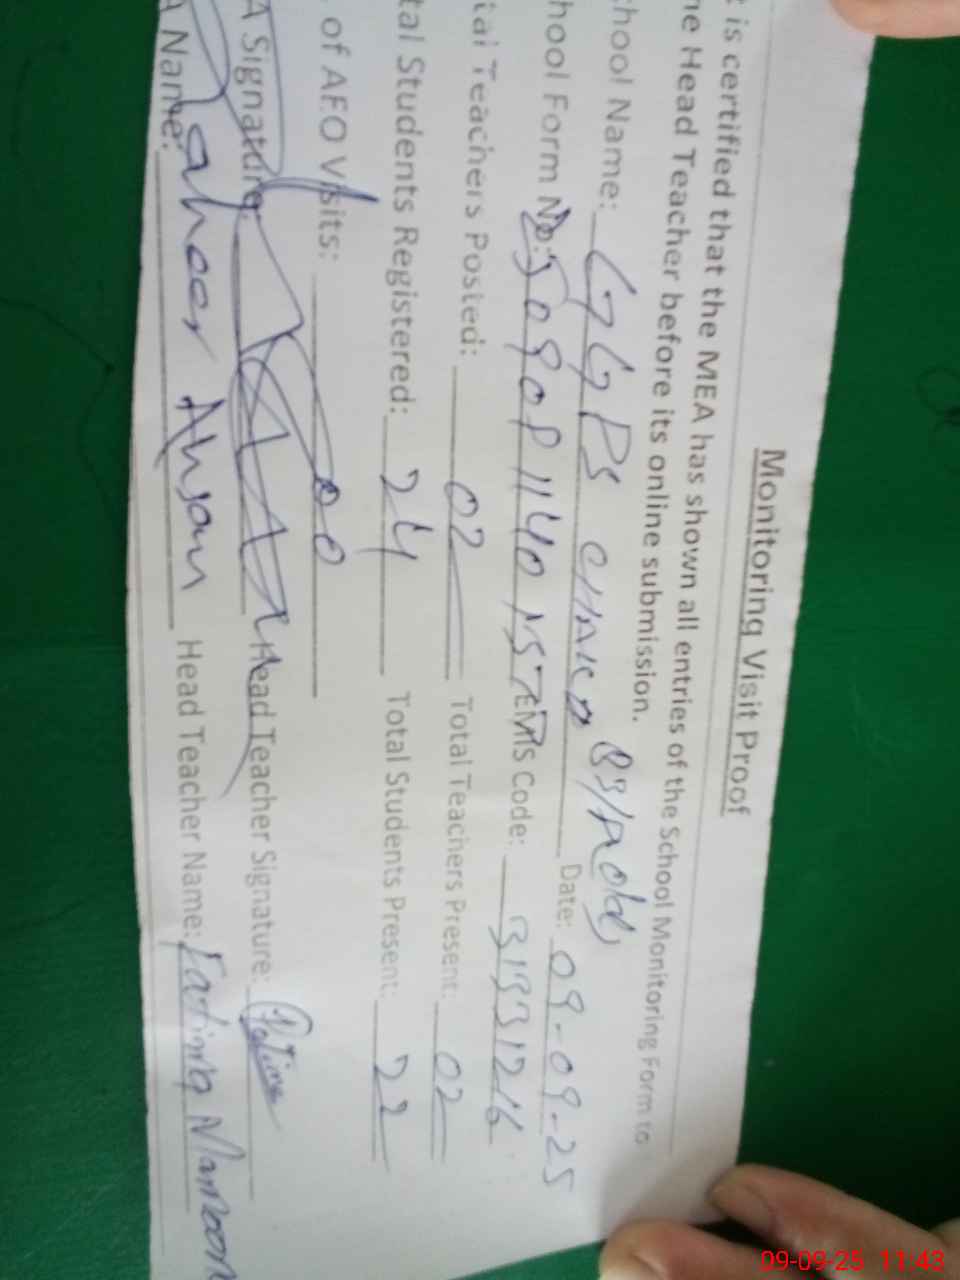 Monitoring Visit Proof
t is certified that the MEA has shown all entries of the School Monitoring Form to
he Head Teacher before its online submission.
chool Name: GGPS Date: 09-09-25
hool Form No: EMIS Code: 31331216
tal Teachers Posted: 02 Total Teachers Present: 02
tal Students Registered: 24 Total Students Present: 22
. of AEO Visits: 00
A Signature: Head Teacher Signature: Fatima
A Name: Ahsan Head Teacher Name: Fatima Mamoona
09-09-25 11:43